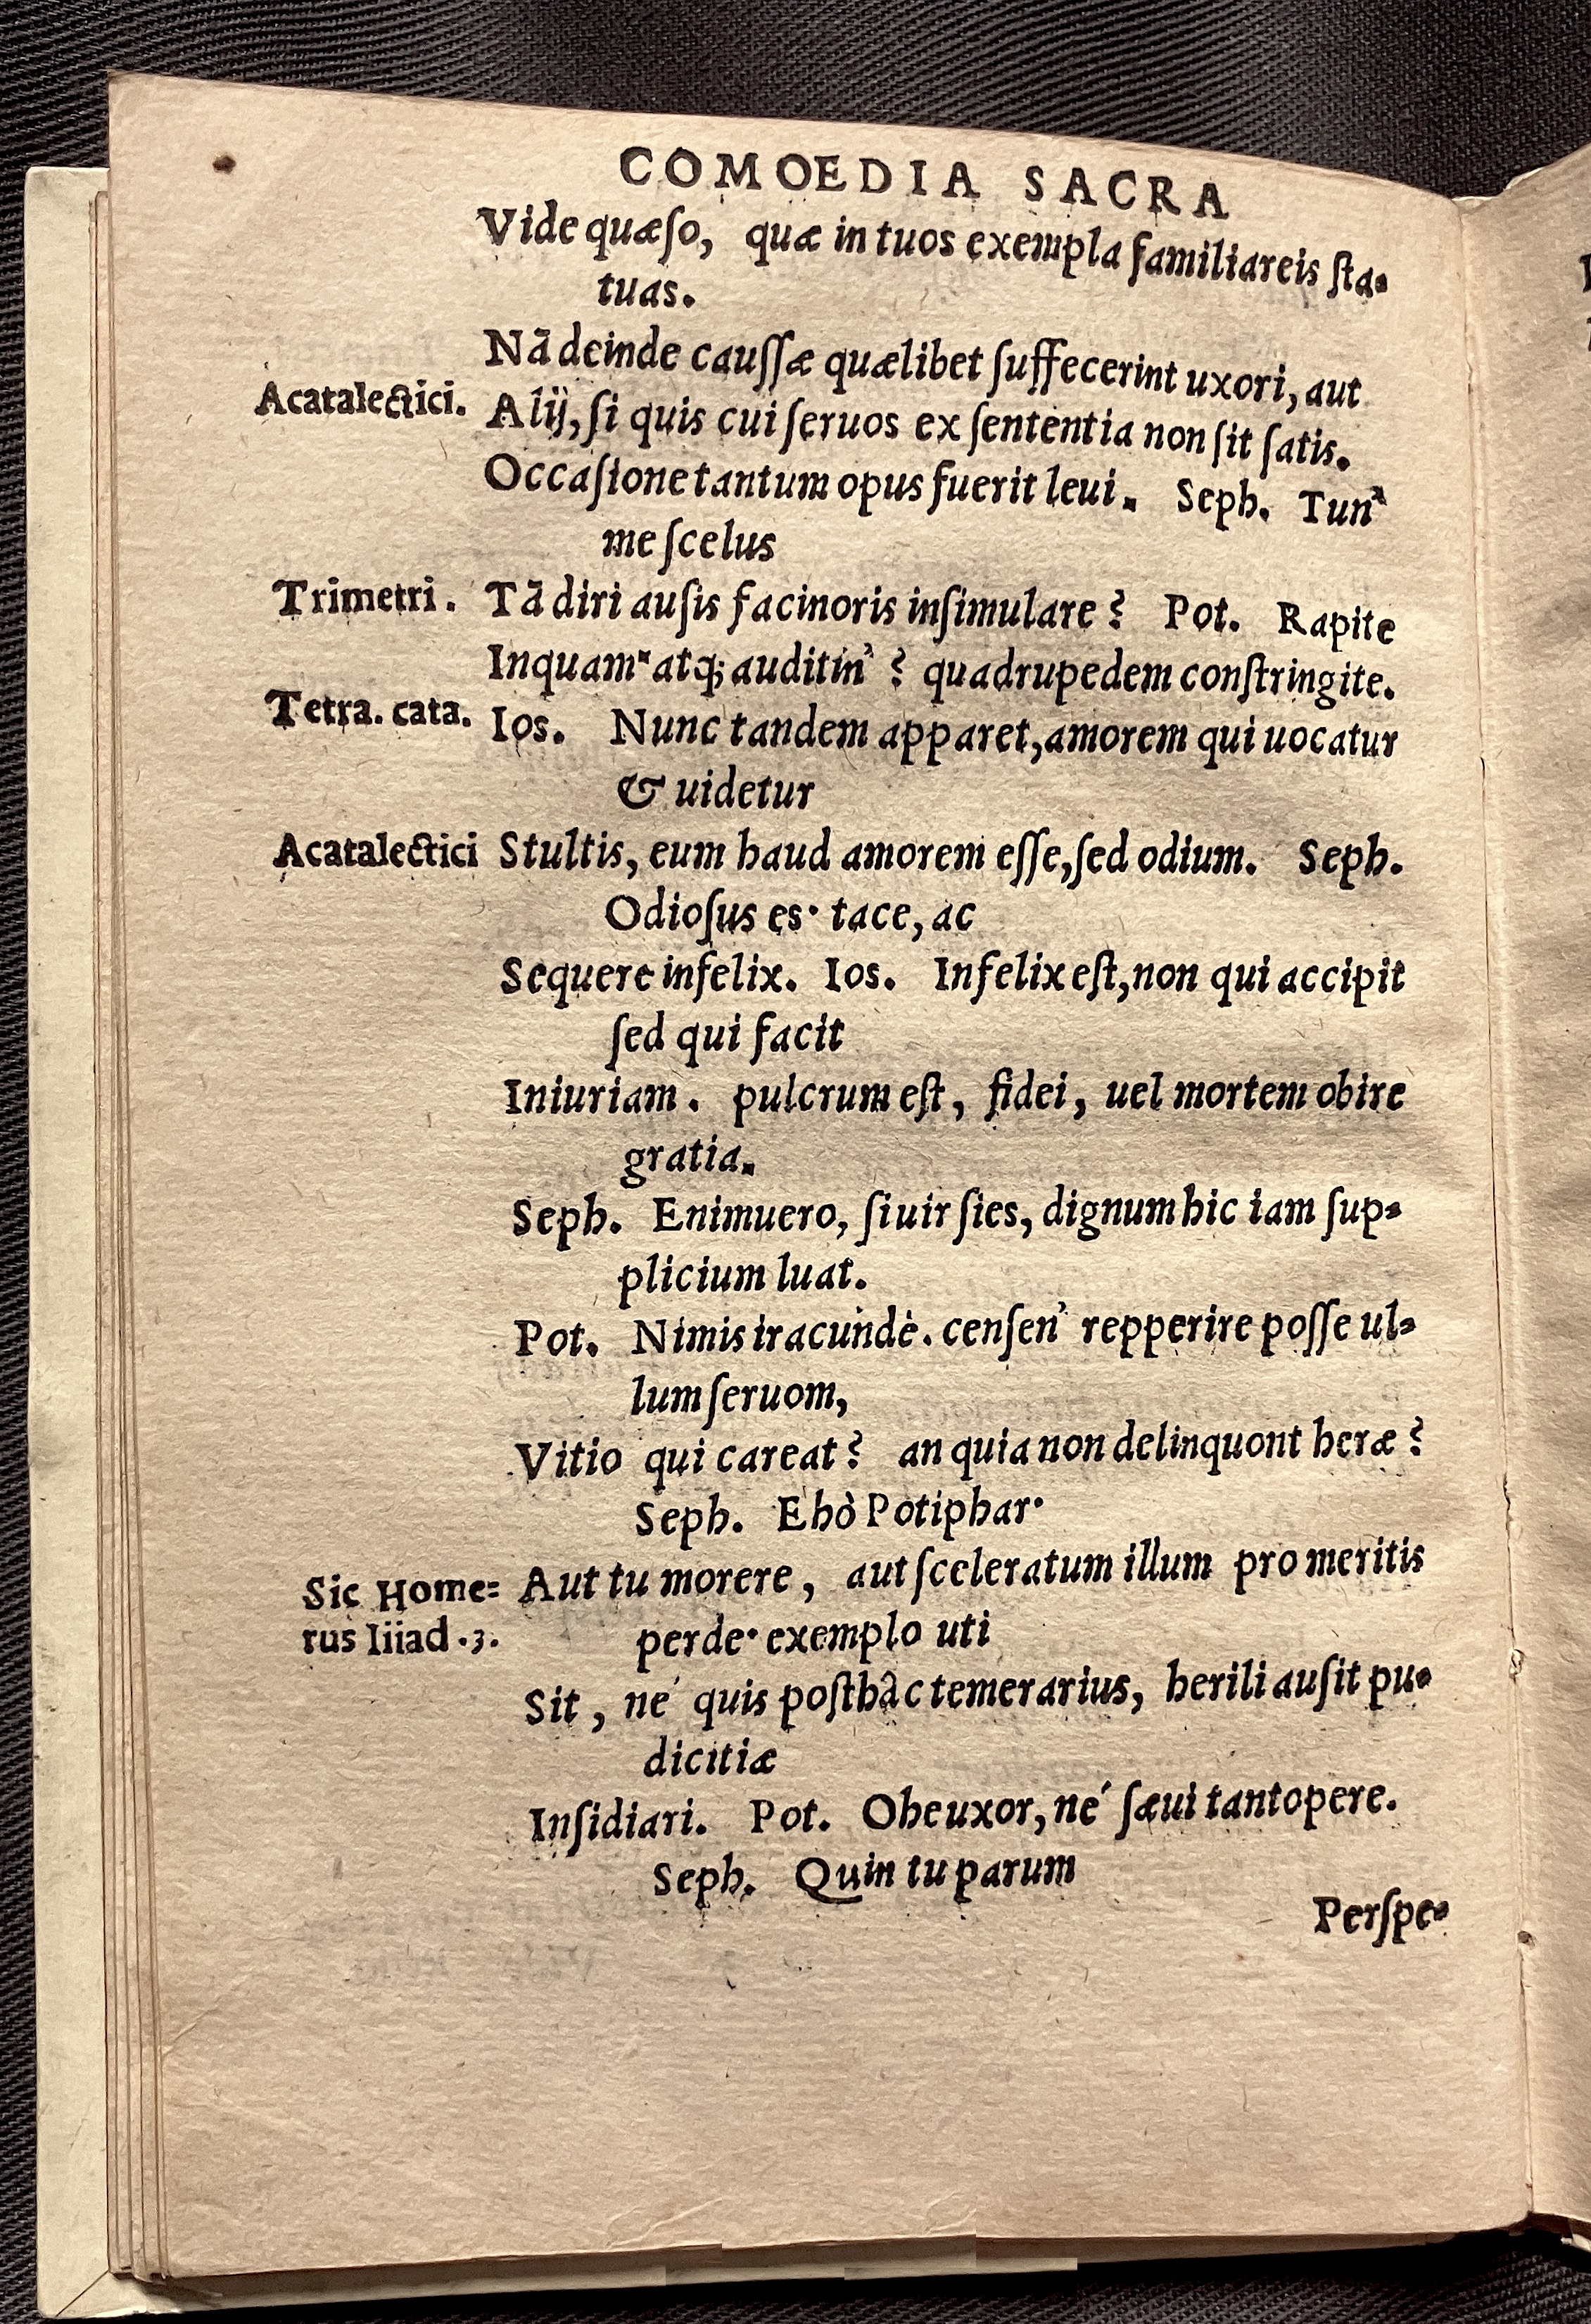 COMOEDIA SACRA
Vide quæſo, quæ in tuos exempla familiareis ſta-
tuas.
Nã deinde cauſſæ quælibet ſuffecerint uxori, aut
Acatalectici. Alij, ſi quis cui ſeruos ex ſententia non ſit ſatis.
Occaſione tantum opus fuerit leui. Seph. Tun'
me ſcelus
Trimetri. Tã diri auſis facinoris inſimulare? Pot. Rapite
Inquam· atq; auditin'? quadrupedem conſtringite.
Tetra. cata. Ios. Nunc tandem apparet, amorem qui uocatur
& uidetur
Acatalectici Stultis, eum haud amorem eſſe, ſed odium. Seph.
Odioſus es· tace, ac
Sequere infelix. Ios. Infelix eſt, non qui accipit
ſed qui facit
Iniuriam. pulcrum eſt, fidei, uel mortem obire
gratia.
Seph. Enimuero, ſi uir ſies, dignum hic iam ſup-
plicium luat.
Pot. Nimis iracundè. cenſen' repperire poſſe ul-
lum ſeruom,
Vitio qui careat? an quia non delinquont heræ?
Seph. Ehò Potiphar·
Sic Home= Aut tu morere, aut ſceleratum illum pro meritis
rus Iiiad .3. perde· exemplo uti
Sit, né quis poſthàc temerarius, herili auſit pu-
dicitiæ
Inſidiari. Pot. Ohe uxor, né ſæui tantopere.
Seph. Quin tu parum
Perſpe-